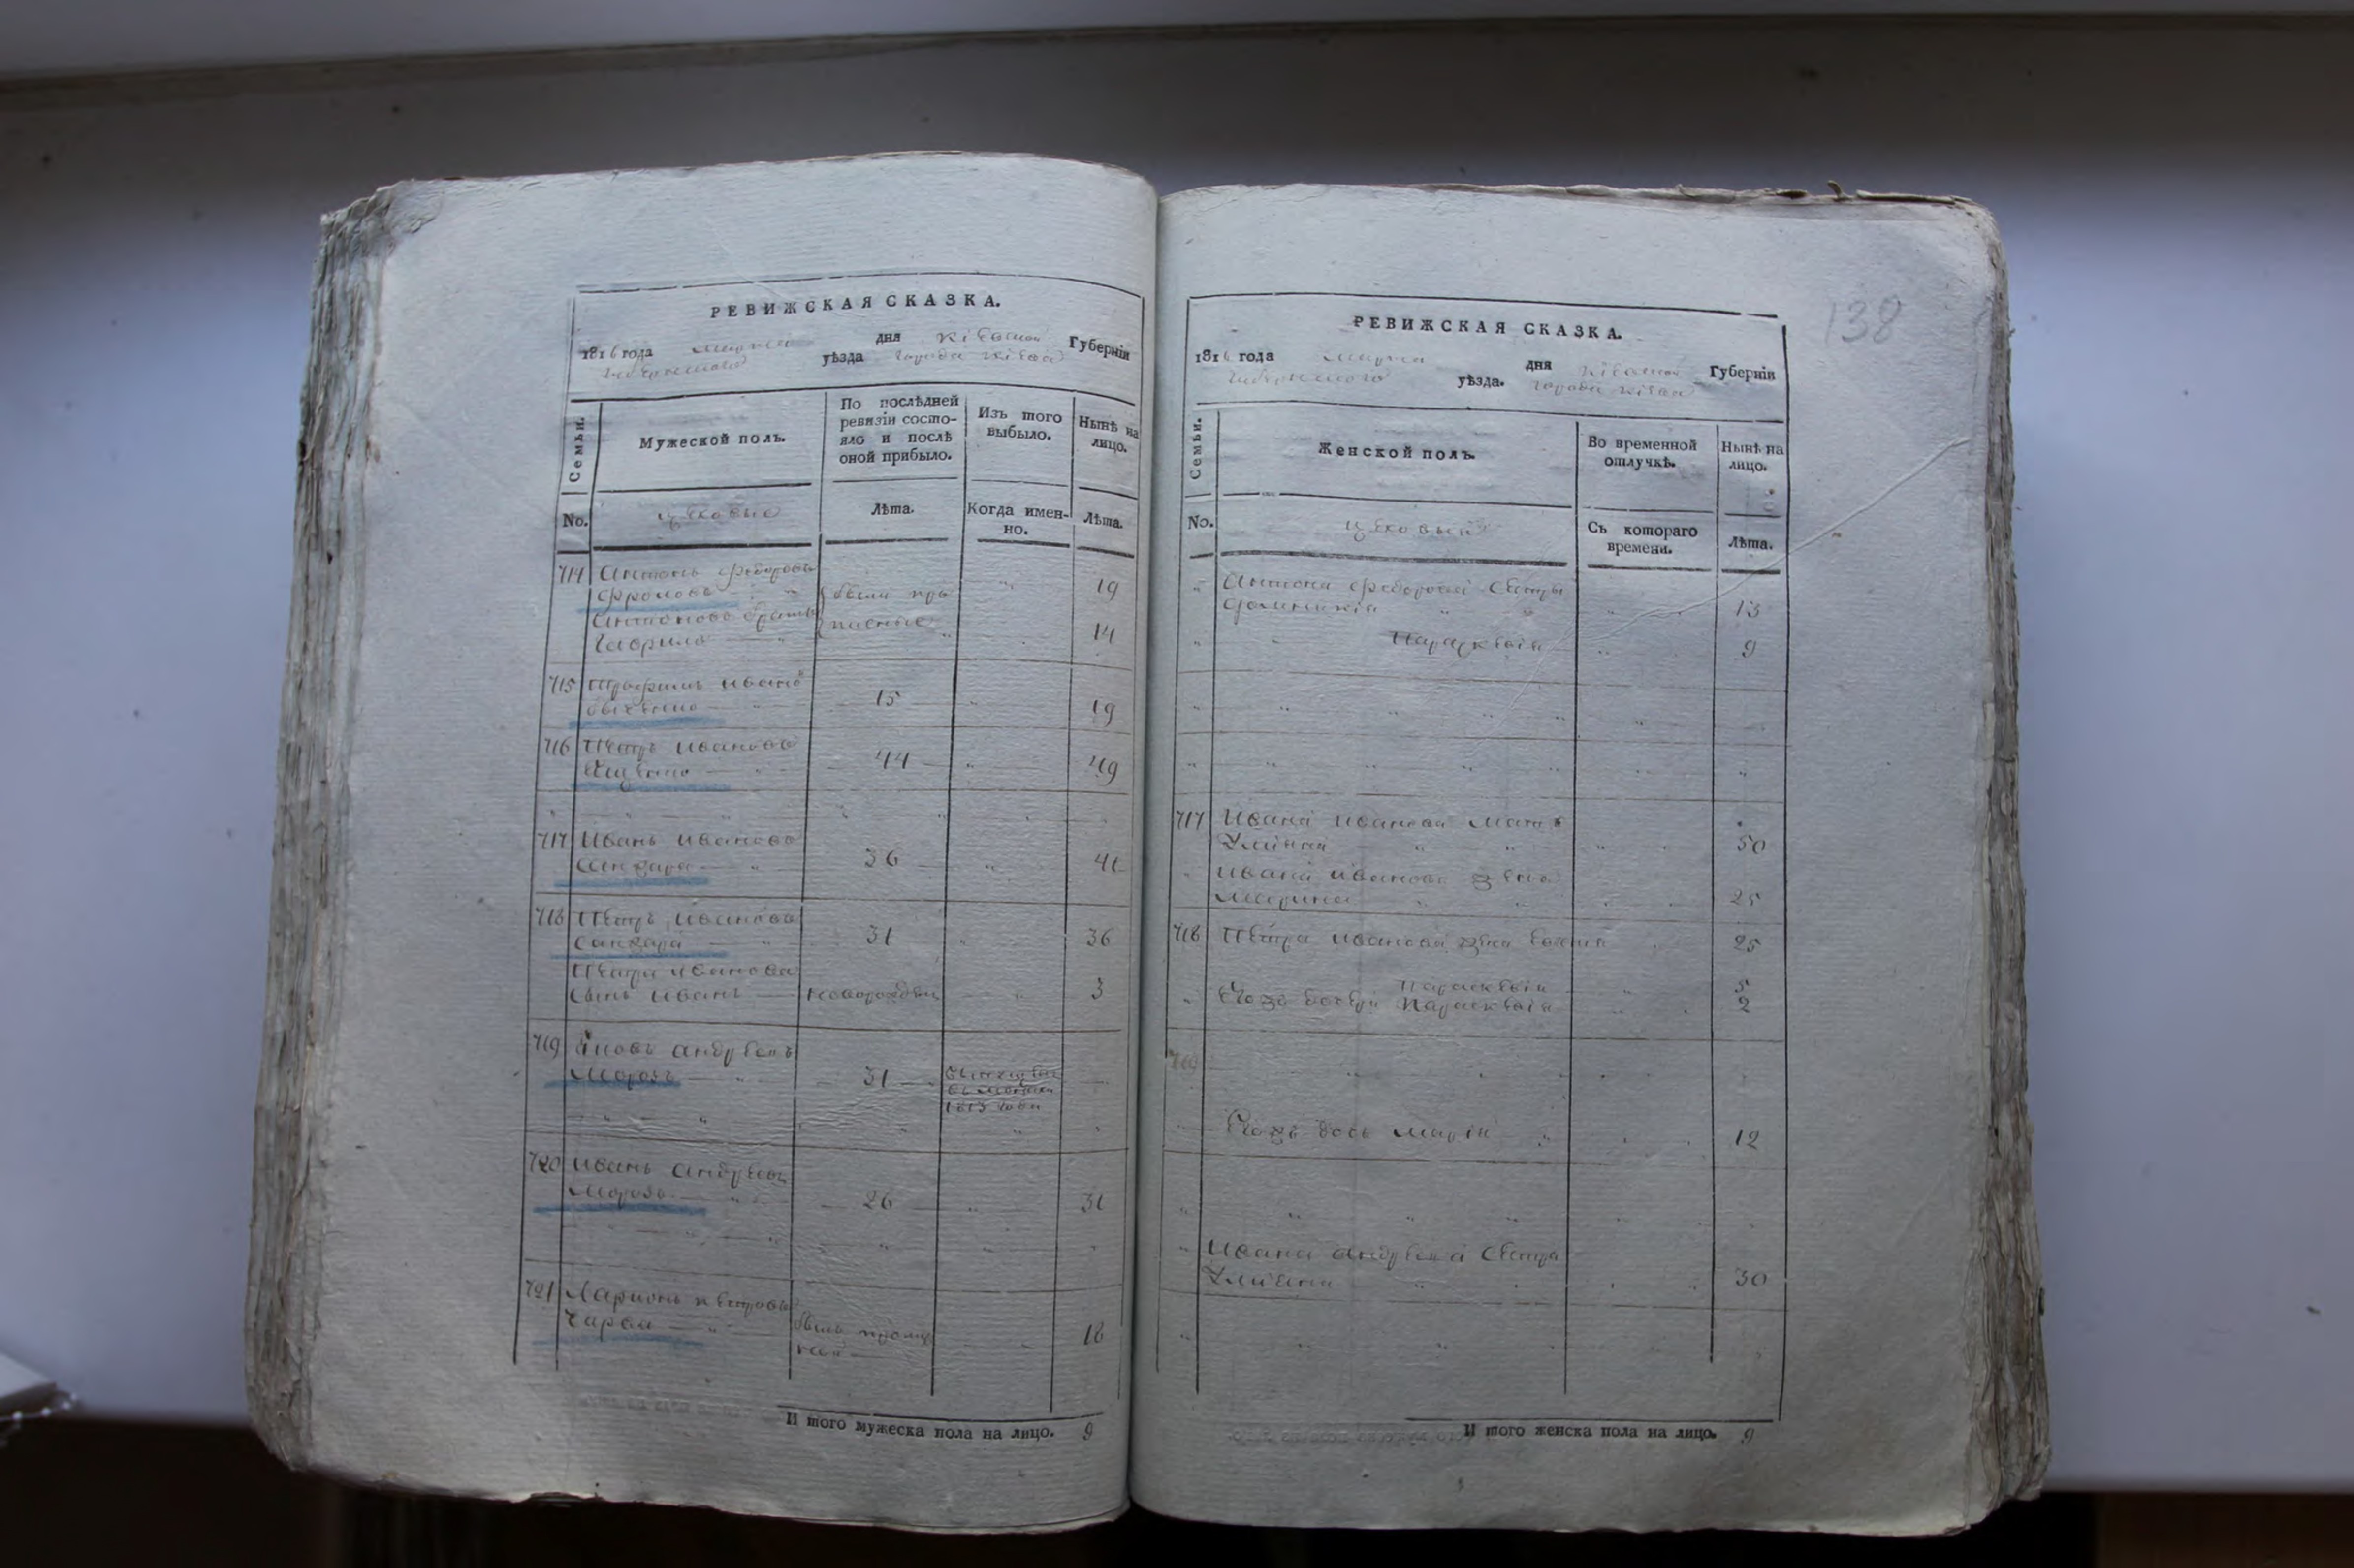 РЕВИЖСКАЯ СКАЗКА.
1816 года марта дня Кіевской Губерніи
уѣзда города Кіева
Семьи.
Мужеской полъ.
По послѣдней ревизіи состо-
яло и послѣ
оной прибыло.
Изъ того
выбыло.
Нынѣ на
лицо.
No.
цеховые
Лѣта.
Когда имен-
но.
Лѣта.
714 Антонъ Федоровъ
Фроловъ были при 19
Антоновъ братъ писные
Гаврило 14
715 Трофимъ Ивановъ
15 19
716 Петръ Ивановъ
44 49
717 Иванъ Ивановъ
36 41
718 Петръ Ивановъ
Санжара 31 36
Петра Иванова
сынъ Иванъ новорожденъ 3
719 Яковъ Андреевъ
Морозъ 31
1813 года
720 Иванъ Андреевъ
Морозъ 26 31
721 Ларионъ Петровъ
былъ 18
И того мужеска пола на лицо. 9
138
РЕВИЖСКАЯ СКАЗКА.
1816 года марта дня Кіевской Губерніи
уѣзда. города Кіева
Семьи.
Женской полъ.
Во временной
отлучкѣ.
Нынѣ на
лицо.
No.
цеховый
Съ котораго
времени.
Лѣта.
Антона Федорова сестры
13
Параскевія 9
717 Ивана Иванова мать
Ульяна 50
Ивана Иванова жена
Марина 25
718 Петра Иванова жена 25
Параскевія 5
Егожъ дочери Параскевія 2
719
Егожъ дочь Марія 12
Ивана Андреева сестра
Ульяна 30
И того женска пола на лицо. 9